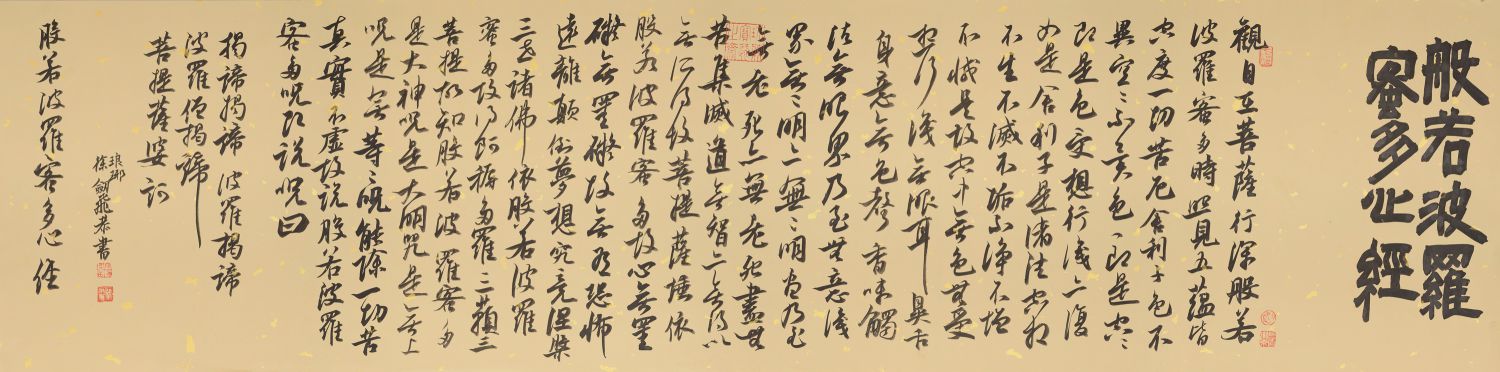 般若波羅
蜜多心經
觀自在菩薩行深般若
波羅蜜多時照見五蘊皆
空度一切苦厄舍利子色不
異空〻不異色〻即是空〻
即是色受想行識亦復
如是舍利子是諸法空相
不生不滅不垢不淨不增
不減是故空中無色無受
想行識無眼耳鼻舌
身意無色聲香味觸
法無眼界乃至無意識
界無〻明亦無〻明盡乃至
無老死亦無老死盡無
苦集滅道無智亦無得以
無所得故菩提薩埵依
般若波羅蜜多故心無罣
礙無罣礙故無有恐怖
遠離顛倒夢想究竟涅槃
三世諸佛依般若波羅
蜜多故得阿耨多羅三藐三
菩提故知般若波羅蜜多
是大神呪是大明咒是無上
呪是無等〻呪能除一切苦
真實不虛故說般若波羅
蜜多呪即說呪曰
揭諦揭諦波羅揭諦
波羅僧揭諦
菩提薩婆訶
琅琊
徐劍飛恭書
般若波羅蜜多心經